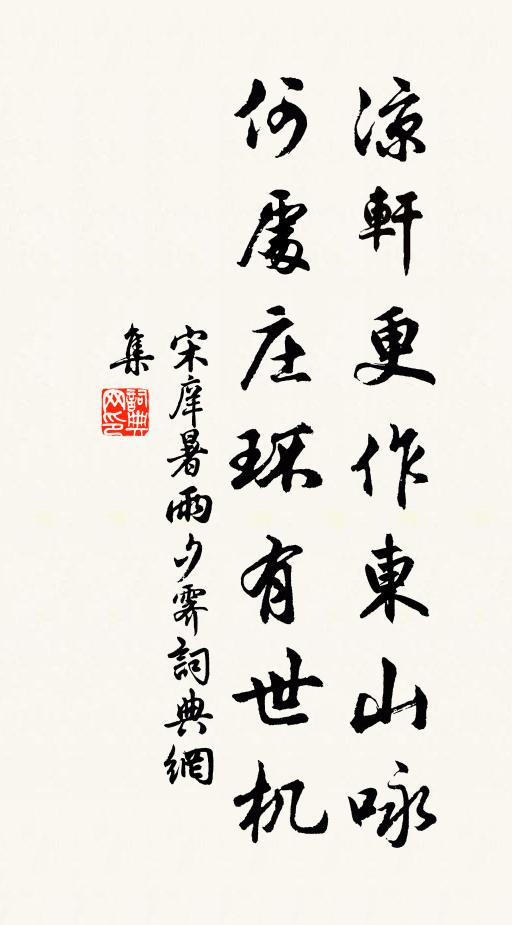 凉軒更作東山咏
何處庄环有世机
宋庠暑雨夕霽詞典網
集
詞典网印